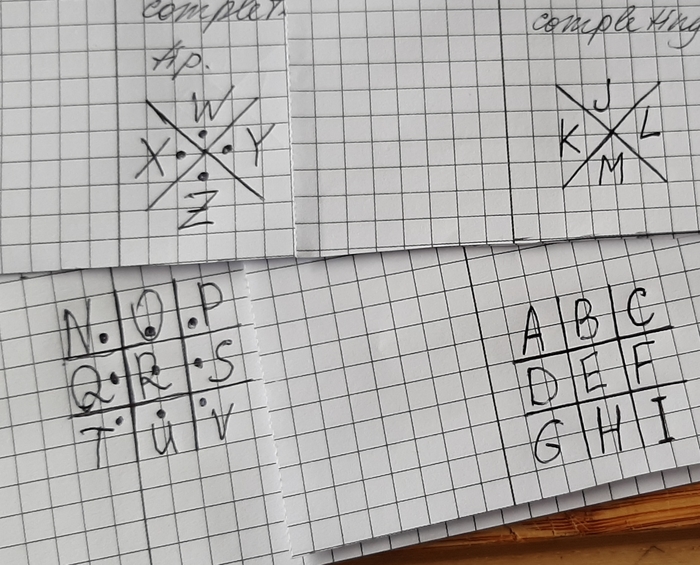 complet
completing
Ap.
W
X Y
Z
J
K L
M
N O P
Q R S
T U V
A B C
D E F
G H I